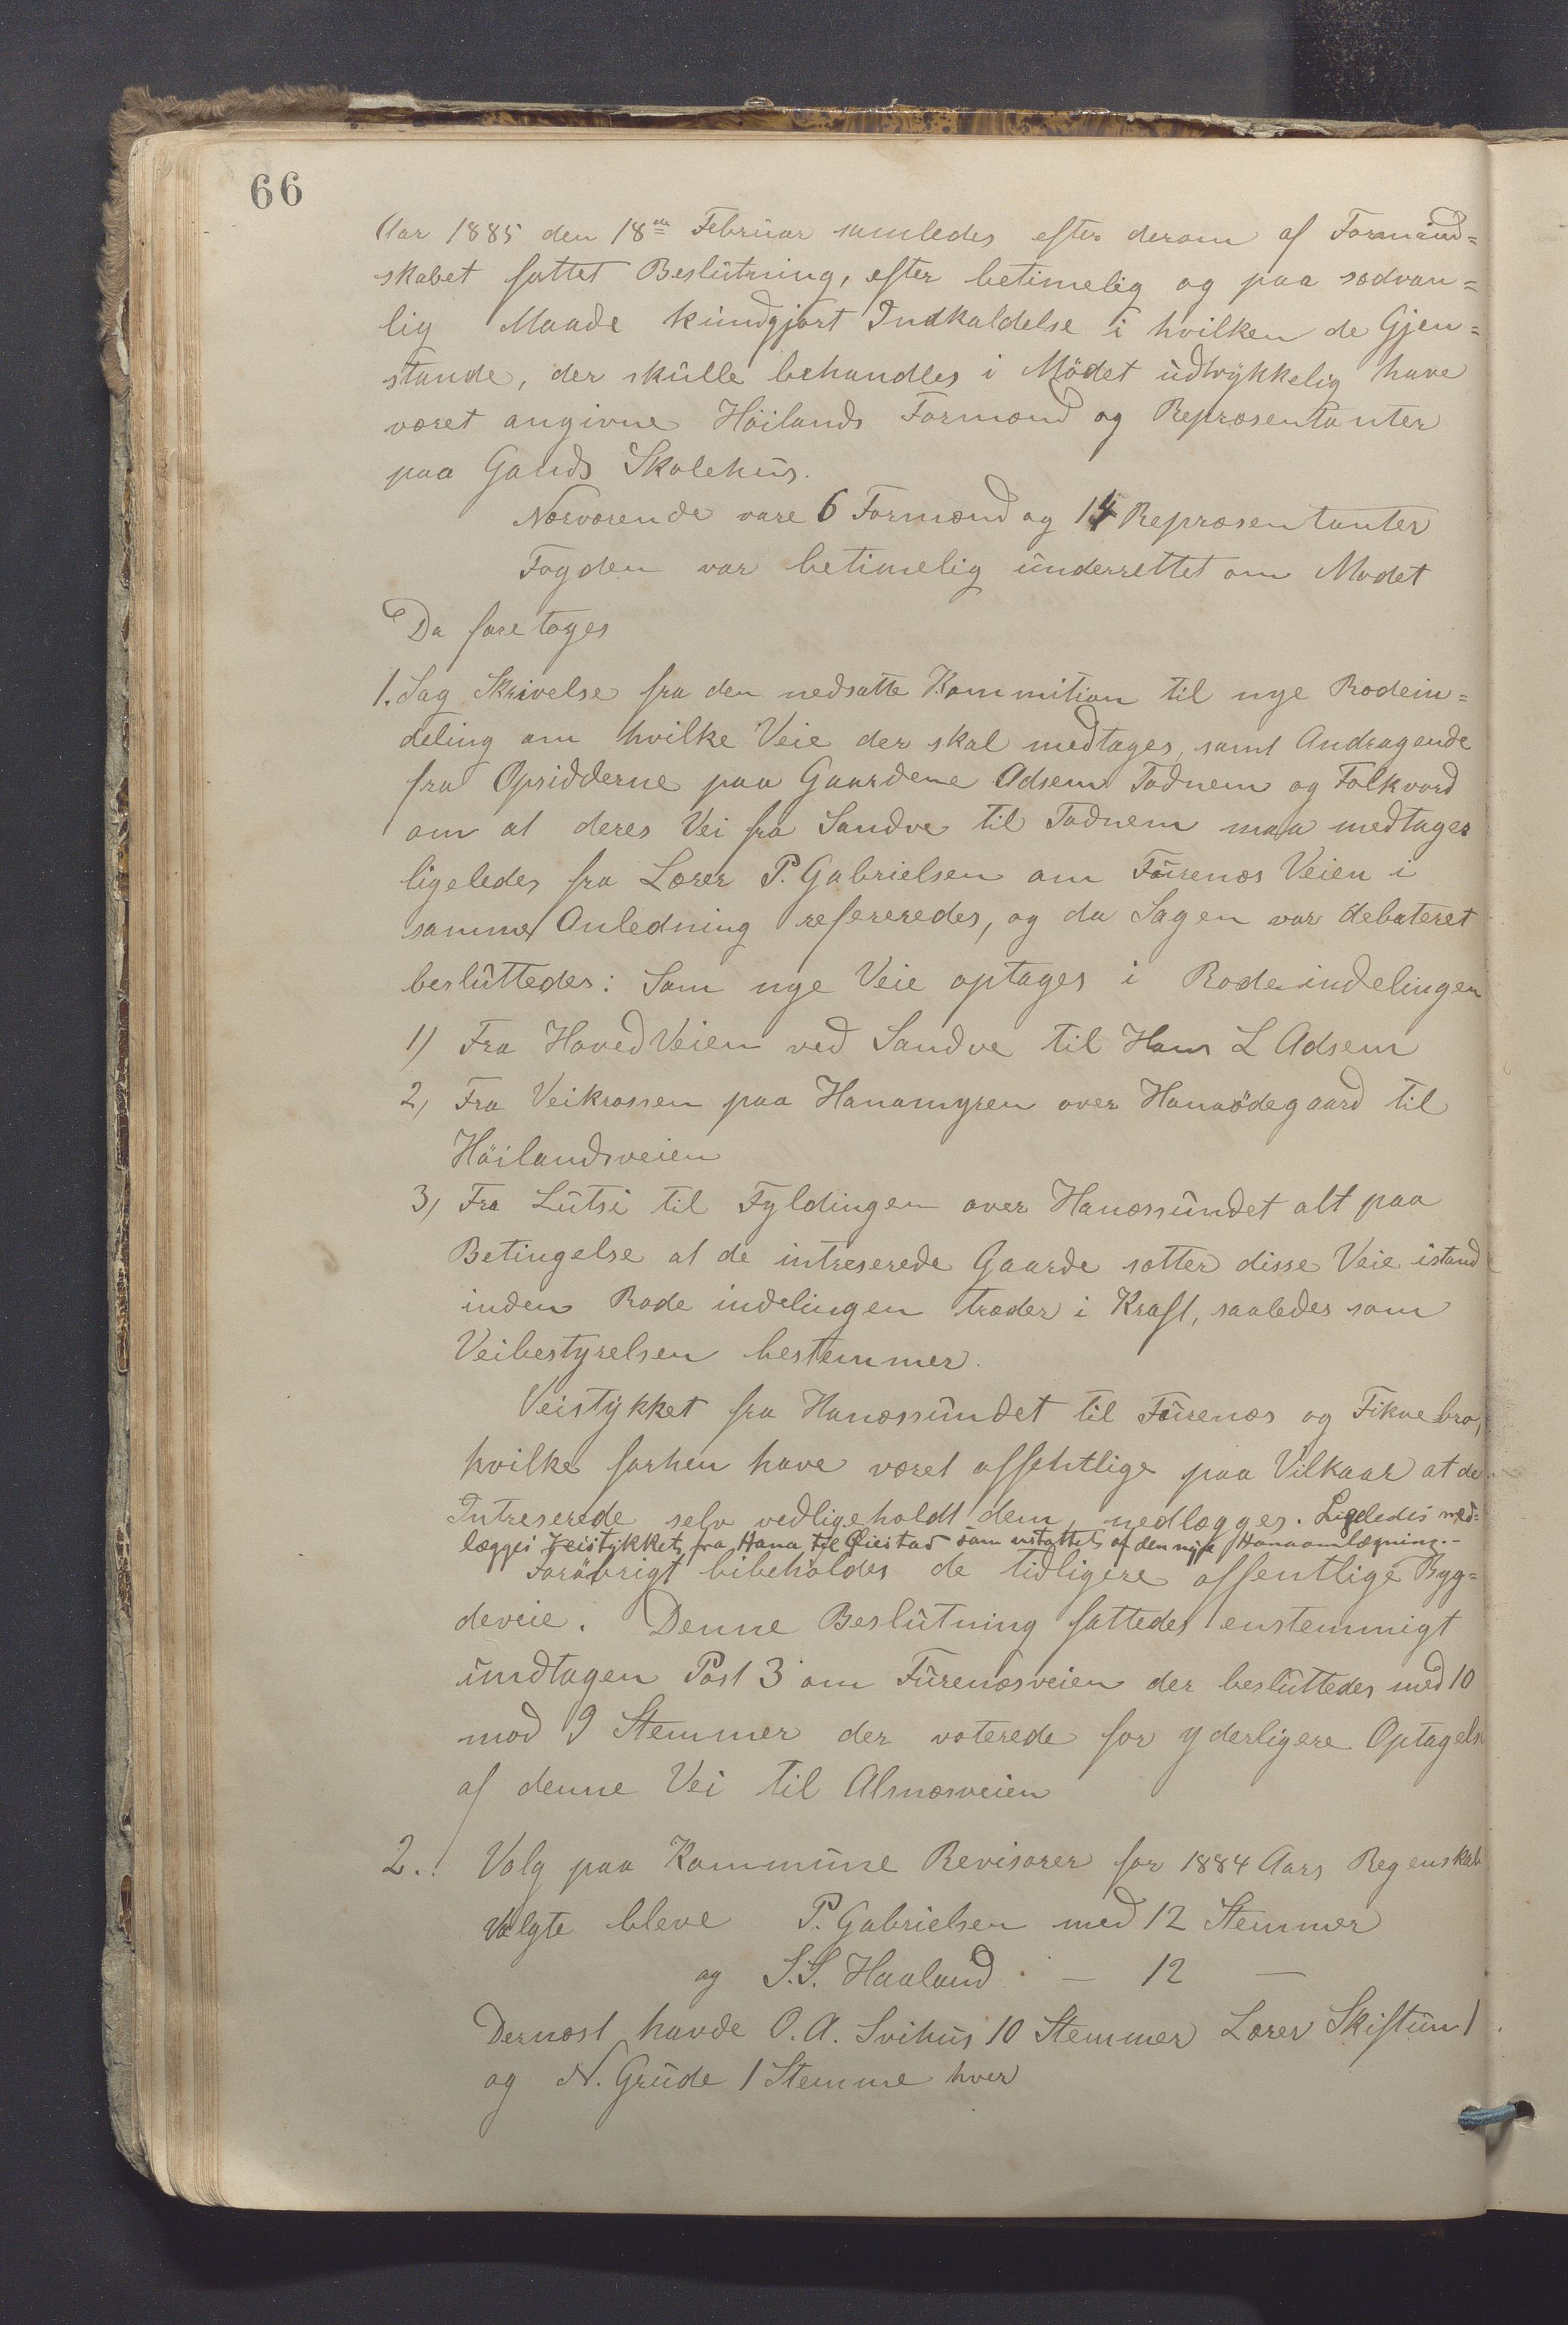 66
Aar 1885 den 18de Februar samledes efter derom af Formand=
skabet fattet Beslutning, efter betimelig og paa sædvan=
lig Maade kundgjort Indkaldelse i hvilken de Gjen=
stande, der skulle behandles i Mödet udtrykkelig have
været angivne Höilands Formænd og Repræsentanter
paa Gands Skolehus.
Nærværende vare 6 Formænd og 14 Repræsentanter
Fogden var betimelig underrettet om Modet
Da foretoges
1. Sag Skrivelse fra den nedsatte Kommition til nye Rodein=
deling om hvilke Veie der skal medtages, samt Andragende
fra Opsidderne paa Gaardene Adsem Todnem og Folkvord
om at deres Vei fra Sandve til Todnem maa medtages
ligeledes fra Lærer P. Gabrielsen om Fürenæs Veien i
samme Anledning refereredes, og da Sagen var debateret
besluttedes: Som nye Veie optages i Rodeindelingen
1) Fra HovedVeien ved Sandve til Hans L Adsem
2, Fra Veikrossen paa Hanamyren over Hanaödegaard til
Höilandsveien
3, Fra Lutsi til Fyldingen over Hanæssundet alt paa
Betingelse at de intreserede Gaarde sætter disse Veie istand
inden Rode indelingen træder i Kraft, saaledes som
Veibestyrelsen bestemmer.
Veistykket fra Hanæssundet til Fürenæs og Fikvebro,
hvilke forhen have været offentlige paa Vilkaar at de
Intreserede selv vedligeholdt dem, nedlægges. Ligeledes ned=
lægges Veistykket fra Hana til Öiestad som erstattet af den nye Hanaomlægning.-
Foröbrigt bibeholdes de tidligere offentlige Byg=
deveie. Denne Beslutning fattedes enstemmigt
undtagen Post 3 om Fürenæsveien der besluttedes med 10
mod 9 Stemmer der voterede for yderligere Optagelse
af denne Vei til Alsnæsveien
2. Valg paa Kommune Revisorer for 1884 Aars Regenskab
Valgte bleve P. Gabrielsen med 12 Stemmer
og S.S. Haaland — 12 —
Dernæst havde O. A. Svihus 10 Stemmer Lærer Skiftun 1
og N. Grude 1 Stemme hver